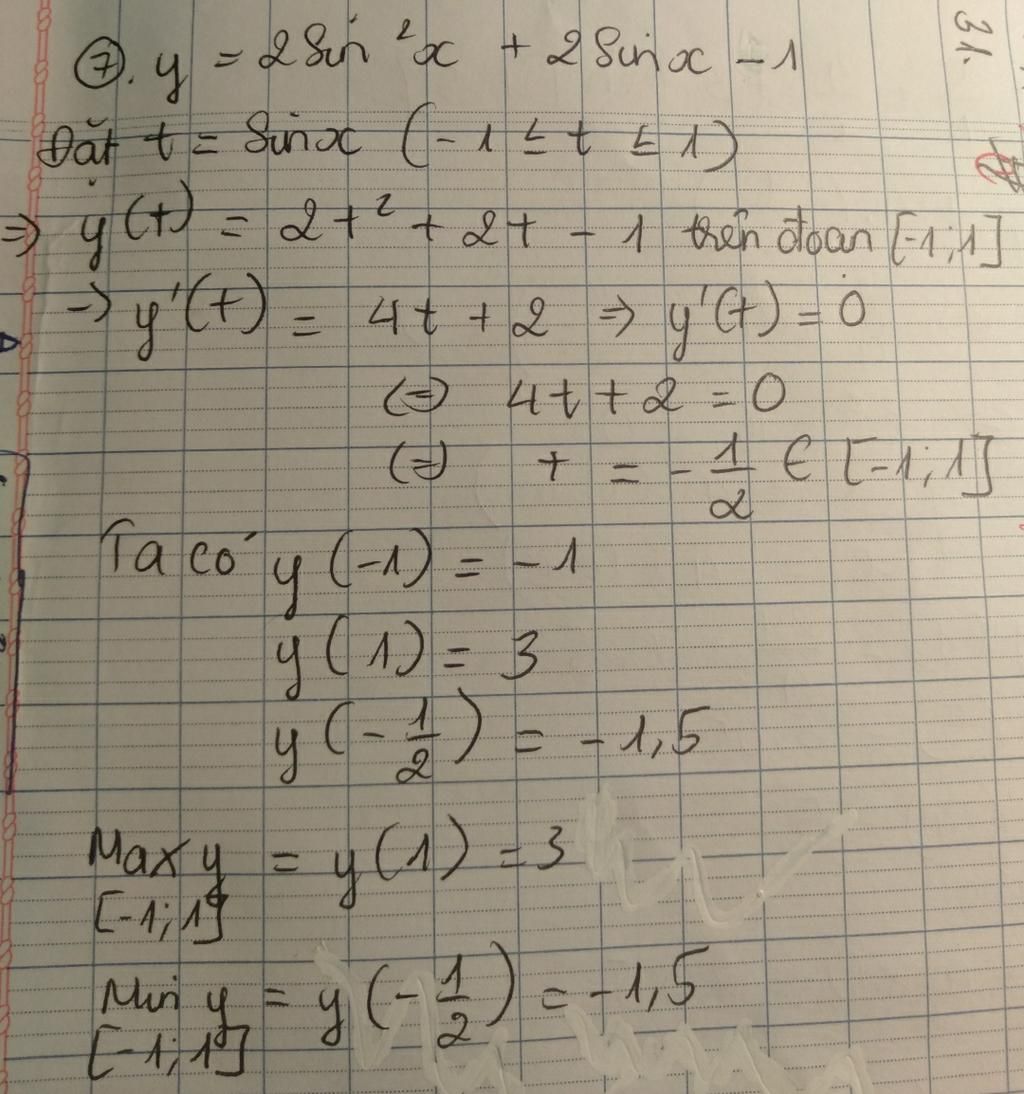 ⑦. y = 2 Sin²x + 2 Sinx - 1
Đặt t = Sinx (-1 ≤ t ≤ 1)
=> y(t) = 2t² + 2t - 1 trên đoạn [-1; 1]
-> y'(t) = 4t + 2 => y'(t) = 0
(=) 4t + 2 = 0
(=) t = -1/2 ∈ [-1; 1]
Ta có y(-1) = -1
y(1) = 3
y(-1/2) = -1,5
Max y = y(1) = 3
[-1; 1]
Min y = y(-1/2) = -1,5
[-1; 1]
31.